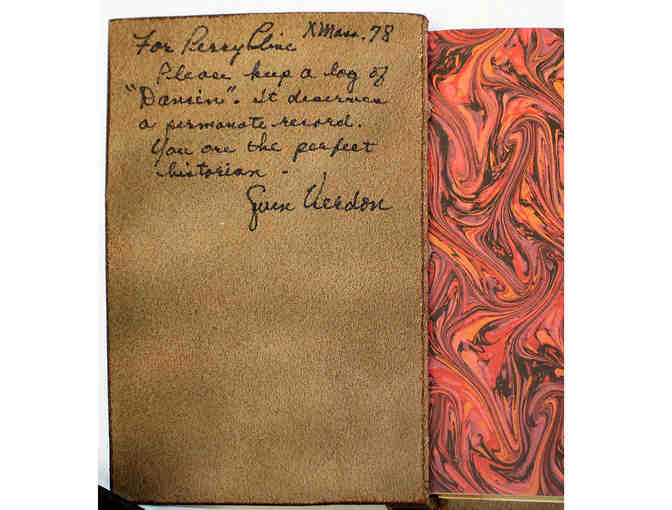 For Perry Cline XMass. 78
Please keep a log of
"Dancin". it deserves
a permanate record.
You are the perfect
historian -
Gwen Verdon